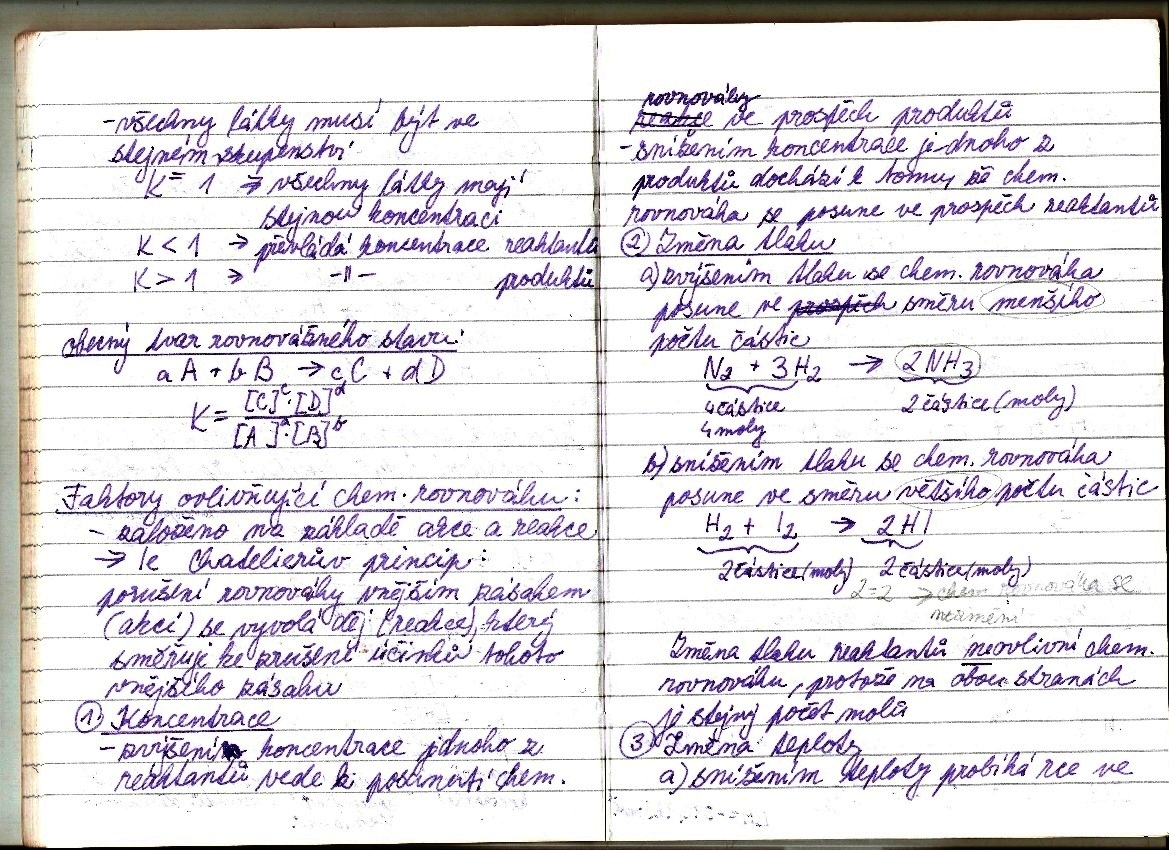 - všechny látky musí být ve
stejném skupenství
K = 1 → všechny látky mají
stejnou koncentraci
K < 1 → převládá koncentrace reaktantů
K > 1 → -||- produktů
obecný tvar rovnovážného stavu:
aA + bB → cC + dD
K = [C]ᶜ·[D]ᵈ
[A]ᵃ·[B]ᵇ
Faktory ovlivňující chem. rovnováhu:
- založeno na základě akce a reakce
→ le Chatelierův princip:
porušení rovnováhy vnějším zásahem
(akcí) se vyvolá děj (reakce), který
směřuje ke zrušení účinků tohoto
vnějšího zásahu
① Koncentrace
- zvýšením koncentrace jednoho z
reaktantů vede k posunutí chem.
rovnováhy
reakce ve prospěch produktů
- snížením koncentrace jednoho z
produktů dochází k tomu že chem.
rovnováha se posune ve prospěch reaktantů
② Změna tlaku
a) zvýšením tlaku se chem. rovnováha
posune ve prospěch směru menšího
počtu částic
N₂ + 3H₂ → 2NH₃
4 částice 2 částice (moly)
4 moly
b) snížením tlaku se chem. rovnováha
posune ve směru většího počtu částic
H₂ + I₂ → 2HI
2 částice (moly) 2 částice (moly)
2=2 → chem rovnováha se
nezmění
Změna tlaku reaktantů neovlivní chem.
rovnováhu, protože na obou stranách
je stejný počet molů
③ Změna teploty
a) snížením teploty probíhá rce ve